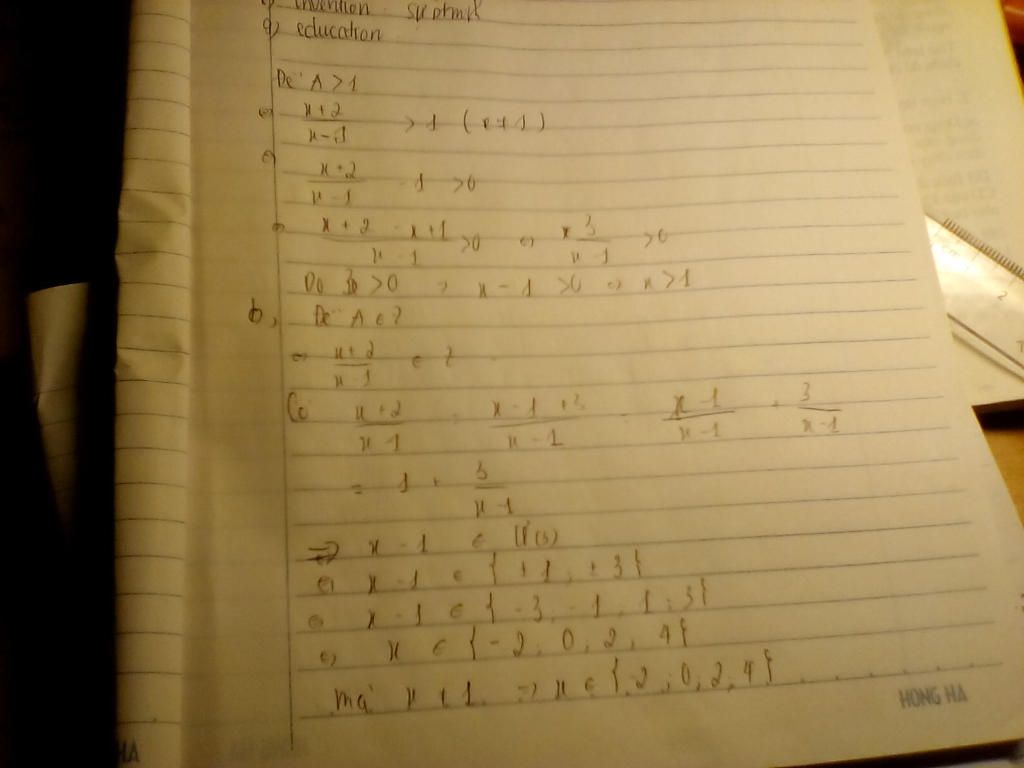 invention
g) education
Để A > 1
⇔ x+2 / x-1 > 1 (x ≠ 1)
⇔ x+2 / x-1 - 1 > 0
⇔ x+2-x+1 / x-1 > 0 ⇔ 3 / x-1 > 0
Do 3 > 0 ⇒ x-1 > 0 ⇔ x > 1
b, Để A ∈ Z
⇔ x+2 / x-1 ∈ Z
Có x+2 / x-1 = x-1+3 / x-1 = x-1 / x-1 + 3 / x-1
= 1 + 3 / x-1
⇒ x-1 ∈ Ư(3)
⇔ x-1 ∈ {±1; ±3}
⇔ x-1 ∈ {-3; -1; 1; 3}
⇔ x ∈ {-2; 0; 2; 4}
mà x ≠ 1 ⇒ x ∈ {-2; 0; 2; 4}
HONG HA
HA